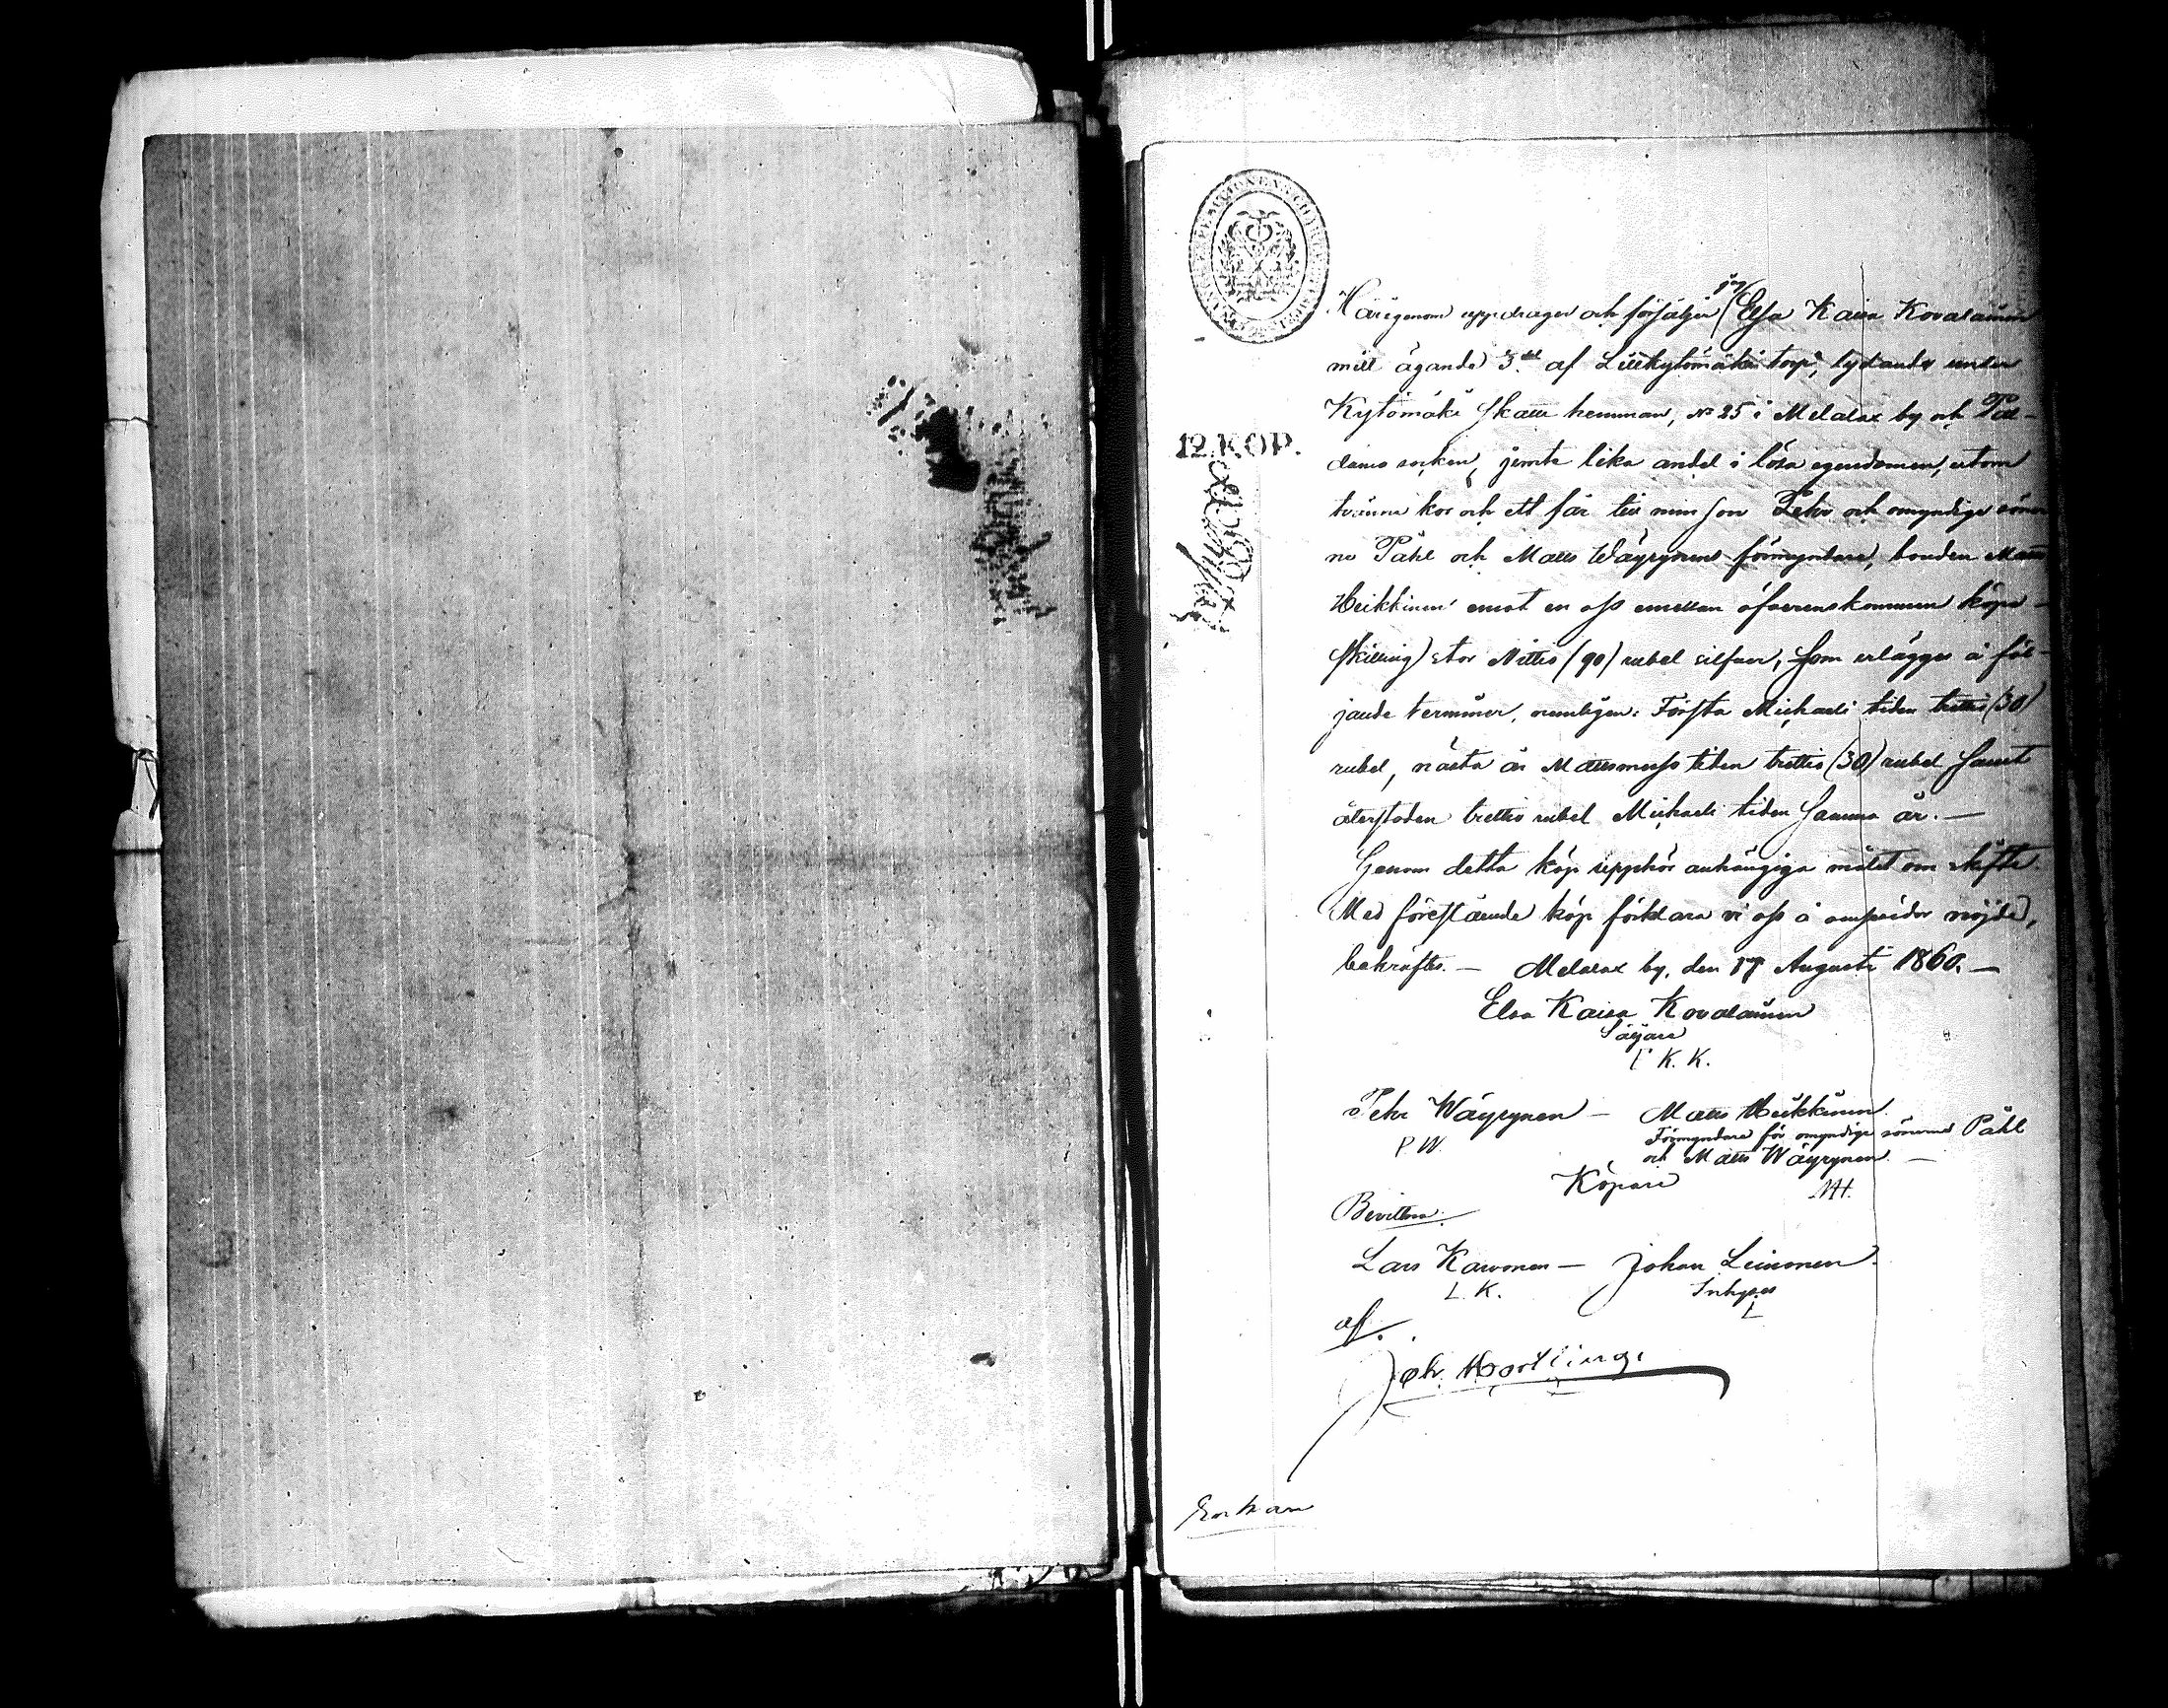 12 KOP.
Härigenom uppdrager och försäljer jag Elsa Kaisa Kovalainen
mitt ägande 3.del af Liikkytömäki torp, lydande under
Kytömäki Skatte hemman, № 25 i Melalax by och Pal-
damo socken, jemte lika andel i lösa egendomen, utom
tvänne kor och ett får till min son Pehr och omyndige söner
ne Påhl och Matts Wäyrynens förmyndare, bonden Matts
Heikkinen emot en oss emellan öfverenskommen köpe-
skilling stor Nittio (90) rubel silfver, som erlägges å föl-
jande terminer, nemligen: Första Michaeli tiden trettio (30)
rubel, nästa år Mattsmesso tiden trettio (30) rubel samt
återstoden trettio rubel Michaeli tiden samma år. —
Genom detta köp upphör anhängiga målet om skifte.
Med förestående köp förklara vi oss å ömse sidor nöjde,
bekräftes. — Melalax by, den 17 Augusti 1860. —
Elsa Kaisa Kovalainen
Säljare
K. K.
Pehr Wäyrynen — Matts Heikkinen
P W Förmyndare för omyndige sönerne Påhl
och Matts Wäyrynen. —
Köpare MH.
Bevittna:
Lars Karvonen — Johan Leinonen.
L. K. Inhyses
L
af.
Joh. Hortling.